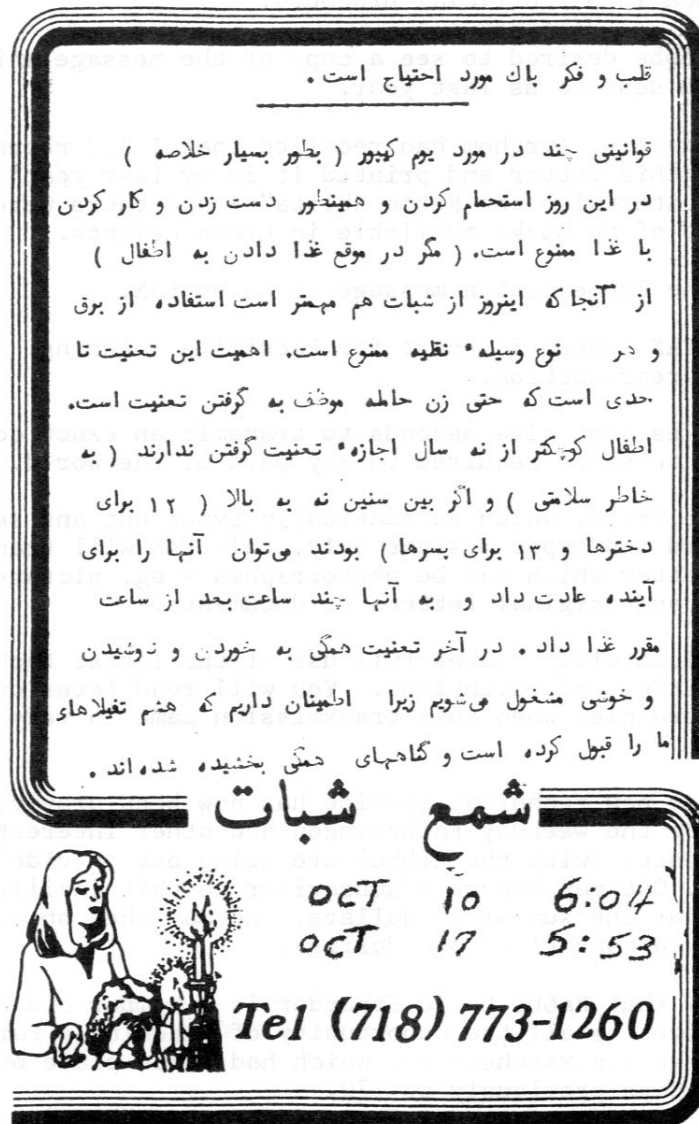 قلب و فکر پاك مورد احتیاج است .
قوانینی چند در مورد یوم کیپور ( بطور بسیار خلاصه )
در این روز استحمام کردن و همینطور دست زدن و کار کردن
با غذا ممنوع است. ( مگر در موقع غذا دادن به اطفال )
از آنجا که اینروز از شبات هم مهمتر است استفاده از برق
و هر نوع وسیلهٔ نقلیه ممنوع است. اهمیت این تعنیت تا
حدی است که حتی زن حامله موظف به گرفتن تعنیت است.
اطفال کوچکتر از نه سال اجازهٔ تعنیت گرفتن ندارند ( به
خاطر سلامتی ) و اگر بین سنین نه به بالا ( ۱۲ برای
دخترها و ۱۳ برای پسرها) بودند می‌توان آنها را برای
آینده عادت داد و به آنها چند ساعت بعد از ساعت
مقرر غذا داد . در آخر تعنیت همگی به خوردن و نوشیدن
و خوشی مشغول می‌شویم زیرا اطمینان داریم که هشم تفیلاهای
ما را قبول کرده است و گناههای همگی بخشیده شده‌اند .
شمع شبات
OCT 10 6:04
OCT 17 5:53
Tel (718) 773-1260